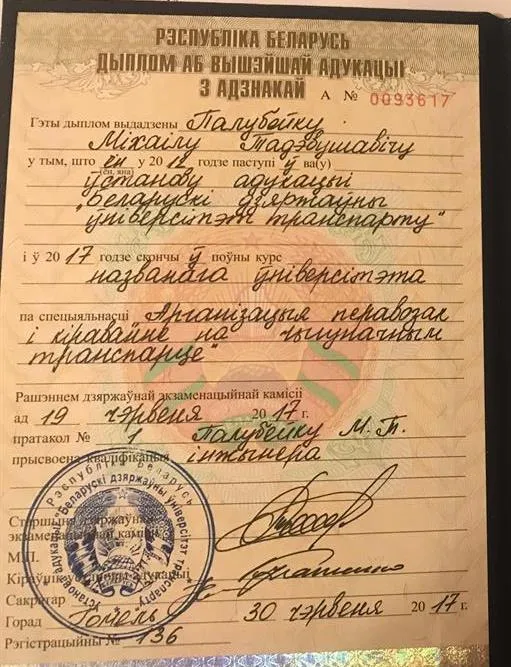 РЭСПУБЛІКА БЕЛАРУСЬ
ДЫПЛОМ АБ ВЫШЭЙШАЙ АДУКАЦЫІ
З АДЗНАКАЙ
А № 0093617
Гэты дыплом выдадзены Палубейку
Міхаілу Тадэвушавічу
у тым, што ён у 2012 годзе паступіў ва(у)
(ён, яна)
ўстанову адукацыі
"Беларускі дзяржаўны
ўніверсітэт транспарту"
і ў 2017 годзе скончыў поўны курс
названага ўніверсітэта
па спецыяльнасці "Арганізацыя перавозак
і кіраванне на чыгуначным
транспарце"
Рашэннем дзяржаўнай экзаменацыйнай камісіі
ад 19 чэрвеня 2017 г.
пратакол № 1 Палубейку М. Т.
прысвоена кваліфікацыя інжынера
Старшыня дзяржаўнай
экзаменацыйнай камісіі
М.П.
Кіраўнік установы адукацыі
Сакратар
Горад Гомель 30 чэрвеня 2017 г.
Рэгістрацыйны № 136
Рэспубліка Беларусь
Установа адукацыі "Беларускі дзяржаўны ўніверсітэт транспарту"